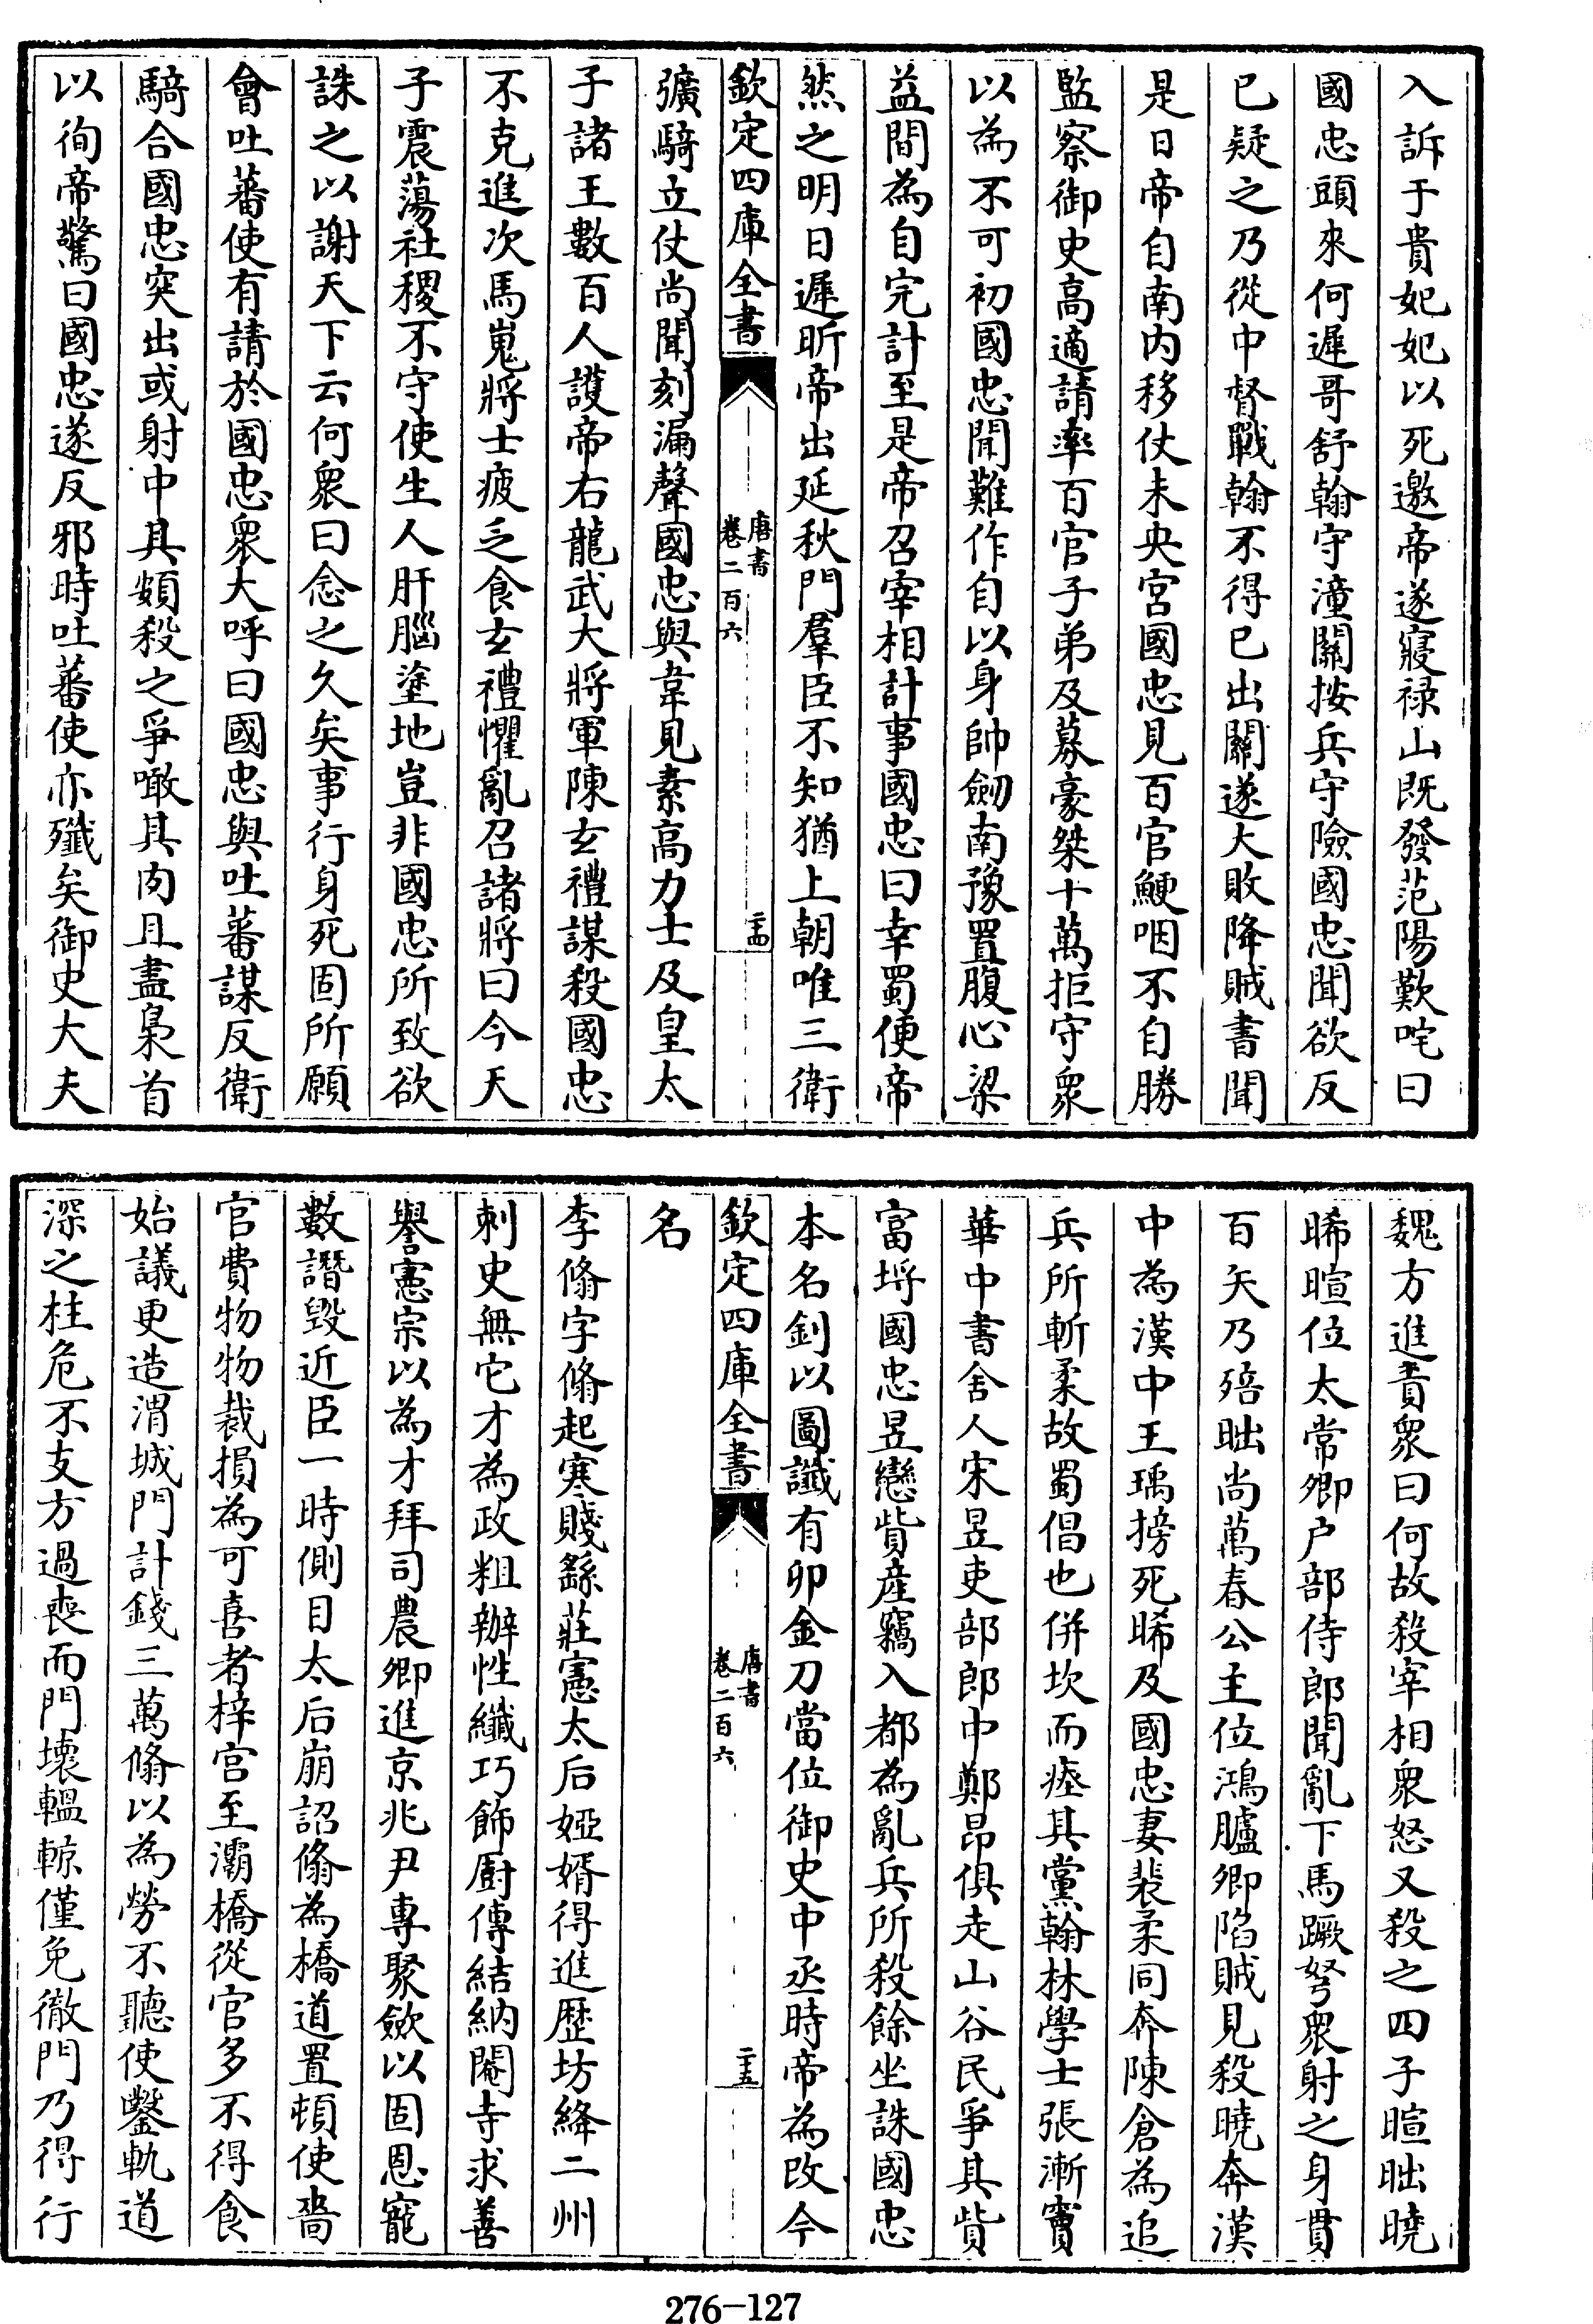 入訴于貴妃妃以死邀帝遂寢禄山既發范陽歎咤曰
國忠頭來何遲哥舒翰守潼關按兵守險國忠聞欲反
已疑之乃從中督戰翰不得已出關遂大敗降賊書聞
是日帝自南内移仗未央宮國忠見百官鯁咽不自勝
監察御史高適請率百官子弟及募豪桀十萬拒守衆
以為不可初國忠聞難作自以身帥劒南豫置腹心梁
益間為自完計至是帝召宰相計事國忠曰幸蜀便帝
然之明日遲昕帝出延秋門羣臣不知猶上朝唯三衛
欽定四庫全書
唐書
卷二百六
二十四
彍騎立仗尚聞刻漏聲國忠與韋見素高力士及皇太
子諸王數百人護帝右龍武大將軍陳玄禮謀殺國忠
不克進次馬嵬將士疲乏食玄禮懼亂召諸將曰今天
子震蕩社稷不守使生人肝腦塗地豈非國忠所致欲
誅之以謝天下云何衆曰念之久矣事行身死固所願
會吐蕃使有請於國忠衆大呼曰國忠與吐蕃謀反衛
騎合國忠突出或射中其頞殺之爭噉其肉且盡梟首
以徇帝驚曰國忠遂反邪時吐蕃使亦殲矣御史大夫
魏方進責衆曰何故殺宰相衆怒又殺之四子暄昢曉
晞暄位太常卿户部侍郎聞亂下馬蹶弩衆射之身貫
百矢乃殕昢尚萬春公主位鴻臚卿陷賊見殺曉奔漢
中為漢中王瑀搒死晞及國忠妻裴柔同奔陳倉為追
兵所斬柔故蜀倡也併坎而瘞其黨翰林學士張漸竇
華中書舍人宋昱吏部郎中鄭昂俱走山谷民爭其貲
富埒國忠昱戀貲産竊入都為亂兵所殺餘坐誅國忠
本名釗以圖讖有卯金刀當位御史中丞時帝為改今
欽定四庫全書
唐書
卷二百六
二十五
名
李翛字翛起寒賤繇莊憲太后婭婿得進歴坊絳二州
刺史無它才為政粗辦性纖巧飾廚傳結納閹寺求善
譽憲宗以為才拜司農卿進京兆尹專聚斂以固恩寵
數譖毀近臣一時側目太后崩詔翛為橋道置頓使嗇
官費物物裁損為可喜者梓宫至灞橋從官多不得食
始議更造渭城門計錢三萬翛以為勞不聽使鑿軌道
深之柱危不支方過喪而門壊轀輬僅免徹門乃得行
276-127